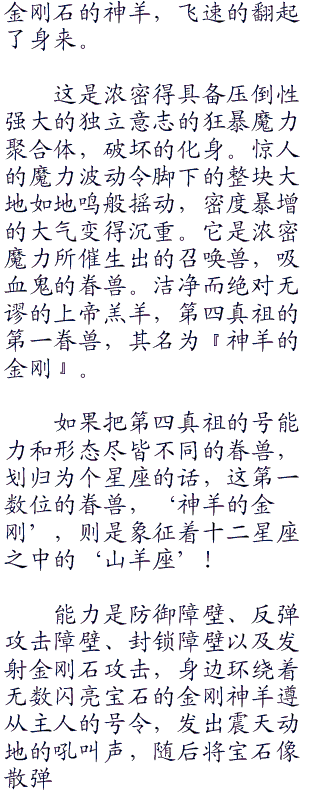 金刚石的神羊，飞速的翻起
了身来。
这是浓密得具备压倒性
强大的独立意志的狂暴魔力
聚合体，破坏的化身。惊人
的魔力波动令脚下的整块大
地如地鸣般摇动，密度暴增
的大气变得沉重。它是浓密
魔力所催生出的召唤兽，吸
血鬼的眷兽。洁净而绝对无
谬的上帝羔羊，第四真祖的
第一眷兽，其名为『神羊的
金刚』。
如果把第四真祖的号能
力和形态尽皆不同的眷兽，
划归为个星座的话，这第一
数位的眷兽，‘神羊的金
刚’，则是象征着十二星座
之中的‘山羊座’！
能力是防御障壁、反弹
攻击障壁、封锁障壁以及发
射金刚石攻击，身边环绕着
无数闪亮宝石的金刚神羊遵
从主人的号令，发出震天动
地的吼叫声，随后将宝石像
散弹